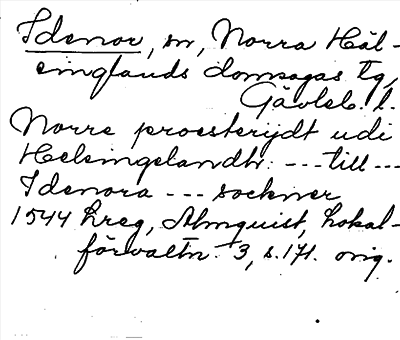 Idenor, sn, Norra Häl-
singlands domsagas tg,
Gävleb. l.
Norre proesterijdt udi
Helsingelandh: --- till ---
Idenora --- sockner
1544 hreg, Almquist, Lokal-
förvaltn. 3, s. 171. orig.